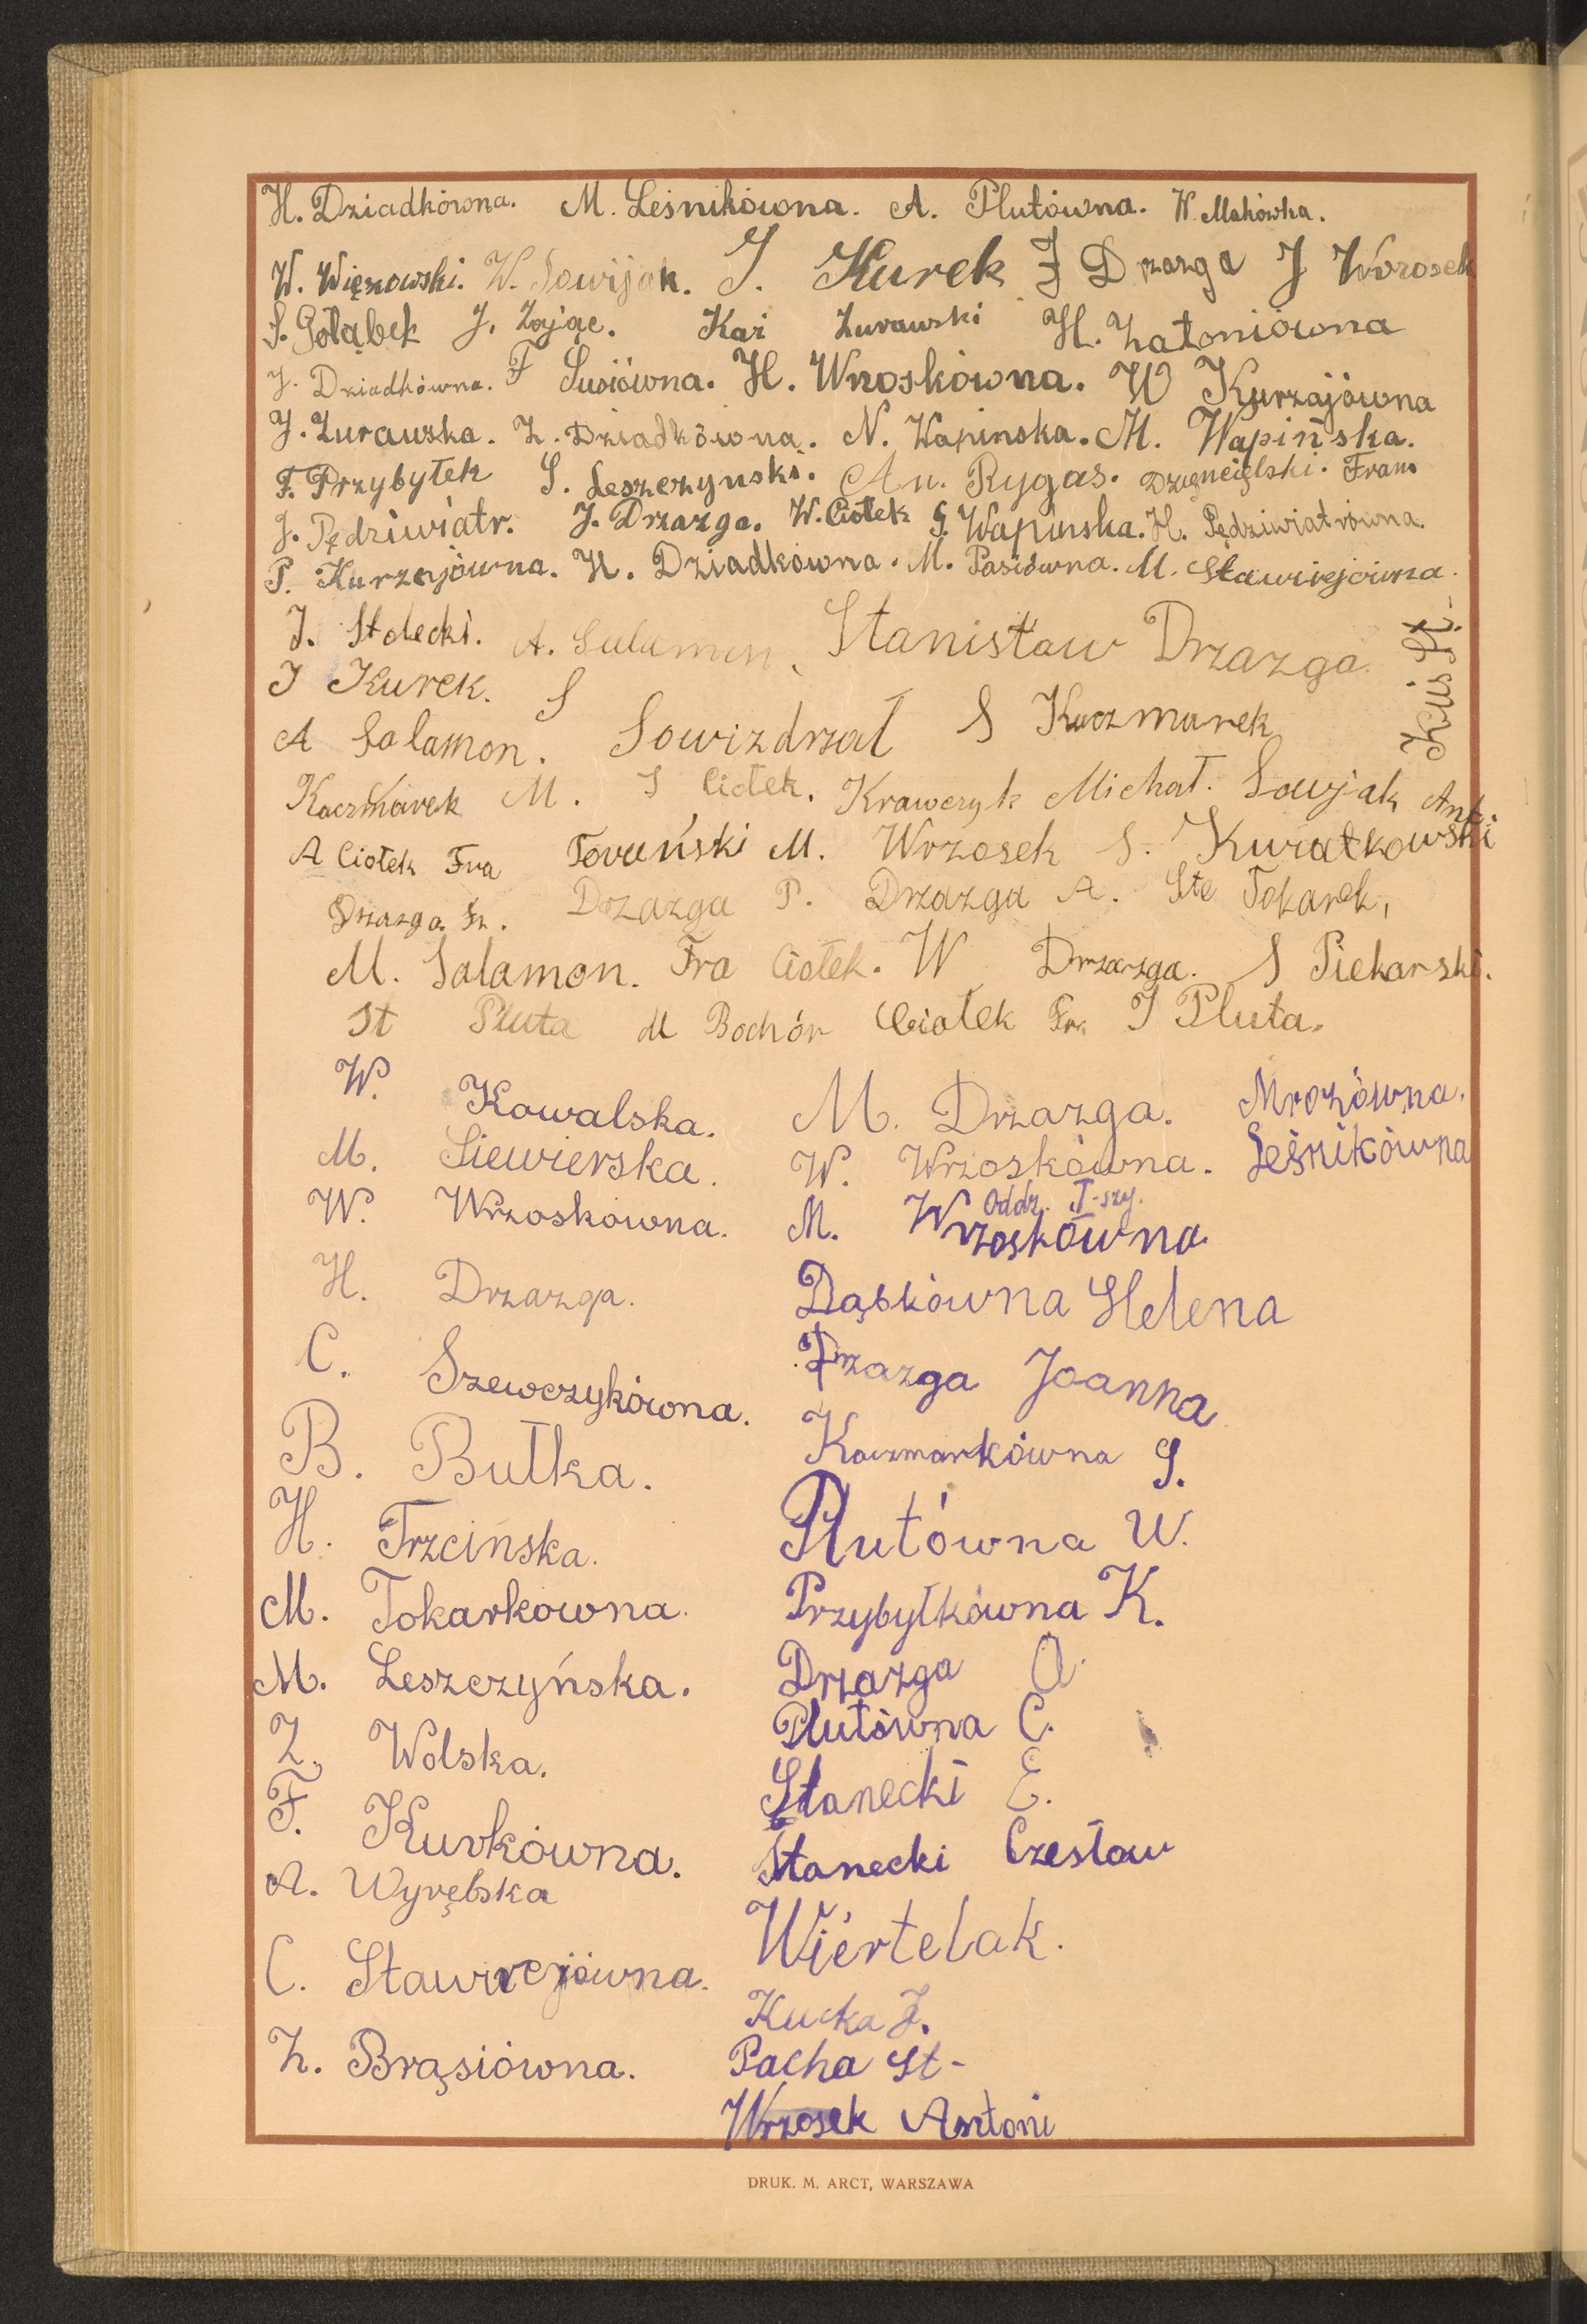 H. Dziadkówna. M. Leśnikówna. A. Plutówna. W. Makówka.
W. Więzowski. W. Sowijak. J. Kurek J Drzazga J Wrzosek
S. Gołąbek J. Zając. Kaź Żurawski H. Zatoniówna
J. Dziadkówna. F Susiówna. H. Wrzoskówna. W Kurzajówna
J. Żurawska. Z. Dziadkówna. N. Wapinska. M. Wapińska.
F. Przybyłek S. Leszczynski. An. Rygas. Dzięncielski. Fran
J. Pędziwiatr. J. Drzazga. W. Ciołek S. Wapinska. H. Pędziwiatrówna.
P. Kurzajówna. H. Dziadkówna. M. Pasiówna. M. Sławirejówna.
J. Stolecki. A. Salamon. Stanisław Drzazga. Kuś St.
J Kurek. S
A Salamon. Sowizdrzał S Kaczmarek
Kaczmarek M. S Ciołek. Krawczyk Michał. Sowjak Ant.
A Ciołek Fra Toruński M. Wrzosek S. Kuratkowski
Drzazga Fr. Drzazga P. Drzazga A. Ste Tokarek,
M. Salamon. Fra Ciołek. W Drzazga. S Piekarski.
St Pluta M Bochór Ciołek Fr. J Pluta.
W. Kowalska. M. Drzazga. Mrozówna.
M. Siewierska. W. Wrzoskówna. Leśnikówna
Oddz. I-szy.
W. Wrzoskówna. M. Wrzoskówna
H. Drzazga. Dąskówna Helena
C. Szewczykówna. Drzazga Joanna
B. Bułka. Kaczmarkówna S.
H. Trzcinska. Plutówna W.
M. Tokarkówna. Przybyłkówna K.
M. Leszczyńska. Drzazga A.
Z. Wolska. Plutówna C.
F. Kurkówna. Stanecki E.
A. Wyrębska Stanecki Czesław
C. Sławirejówna. Wiertelak.
Kucka J.
Z. Brąsiówna. Pacha St-
Wrzosek Antoni
DRUK. M. ARCT, WARSZAWA